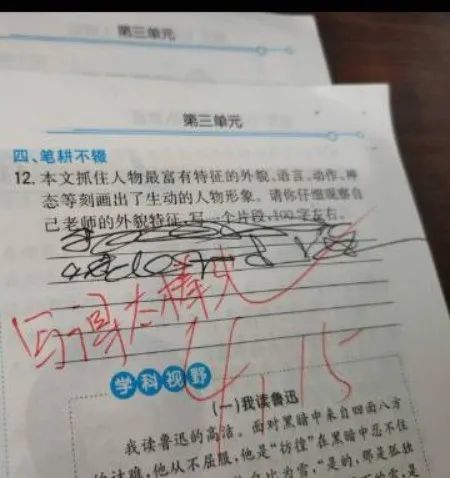 第三单元
第三单元
四、笔耕不辍
12. 本文抓住人物最富有特征的外貌、语言、动作、神
态等刻画出了生动的人物形象。请你仔细观察自
己老师的外貌特征,写一个片段,100字左右。
写得太棒了
4.15
学科视野
(一)我读鲁迅
我读鲁迅的高洁。面对黑暗中来自四面八方
他从不屈服,他是“彷徨”在黑暗中忍不住
为雪,“是的,那是孤独